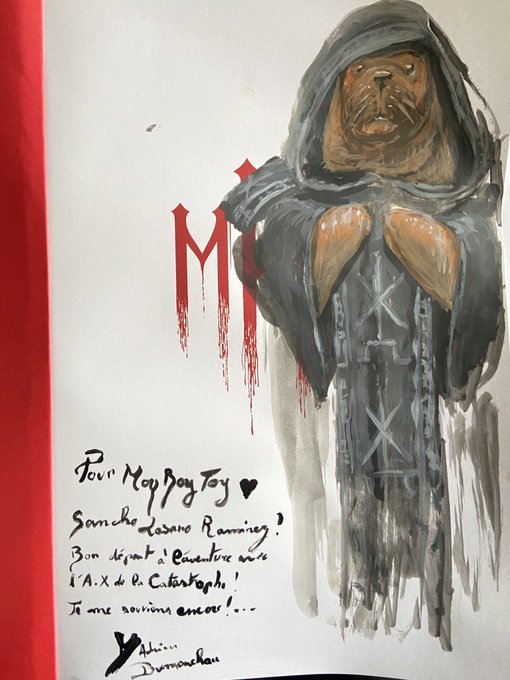 Mi
Pour Moy Boy Toy
Sancho Lozano Ramirez?
Bon départ à l'aventure avec
l'A.X de la Catastrophe!
Te me souviens encor!...
Adrien